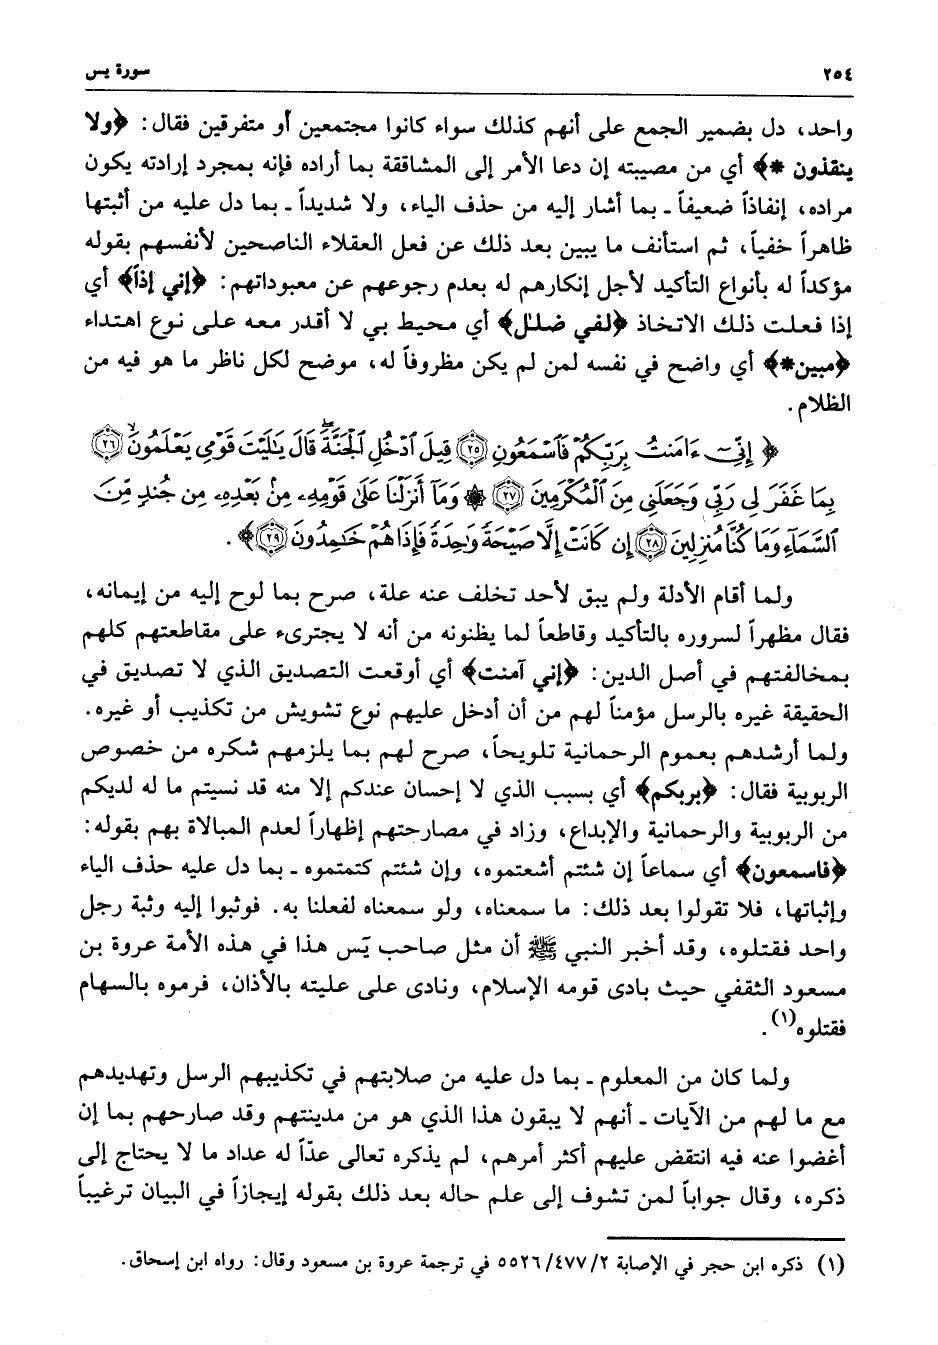 ٢٥٤ سورة يس
واحد، دل بضمير الجمع على أنهم كذلك سواء كانوا مجتمعين أو متفرقين فقال: ﴿ولا
ينقذون *﴾ أي من مصيبته إن دعا الأمر إلى المشاققة بما أراده فإنه بمجرد إرادته يكون
مراده، إنفاذاً ضعيفاً ـ بما أشار إليه من حذف الياء، ولا شديداً ـ بما دل عليه من أثبتها
ظاهراً خفياً، ثم استأنف ما يبين بعد ذلك عن فعل العقلاء الناصحين لأنفسهم بقوله
مؤكداً له بأنواع التأكيد لأجل إنكارهم له بعدم رجوعهم عن معبوداتهم: ﴿إني إذاً﴾ أي
إذا فعلت ذلك الاتخاذ ﴿لفي ضلٰل﴾ أي محيط بي لا أقدر معه على نوع اهتداء
﴿مبين*﴾ أي واضح في نفسه لمن لم يكن مظروفاً له، موضح لكل ناظر ما هو فيه من
الظلام.
﴿ إِنِّيٓ ءَامَنتُ بِرَبِّكُمْ فَٱسْمَعُونِ ٢٥ قِيلَ ٱدْخُلِ ٱلْجَنَّةَۖ قَالَ يَٰلَيْتَ قَوْمِي يَعْلَمُونَۙ ٢٦
بِمَا غَفَرَ لِي رَبِّي وَجَعَلَنِي مِنَ ٱلْمُكْرَمِينَ ٢٧ ۞ وَمَآ أَنزَلْنَا عَلَىٰ قَوْمِهِۦ مِنۢ بَعْدِهِۦ مِن جُندٖ مِّنَ
ٱلسَّمَآءِ وَمَا كُنَّا مُنزِلِينَ ٢٨ إِن كَانَتْ إِلَّا صَيْحَةً وَٰحِدَةً فَإِذَا هُمْ خَٰمِدُونَ ٢٩﴾.
ولما أقام الأدلة ولم يبق لأحد تخلف عنه علة، صرح بما لوح إليه من إيمانه،
فقال مظهراً لسروره بالتأكيد وقاطعاً لما يظنونه من أنه لا يجترىء على مقاطعتهم كلهم
بمخالفتهم في أصل الدين: ﴿إني آمنت﴾ أي أوقعت التصديق الذي لا تصديق في
الحقيقة غيره بالرسل مؤمناً لهم من أن أدخل عليهم نوع تشويش من تكذيب أو غيره.
ولما أرشدهم بعموم الرحمانية تلويحاً، صرح لهم بما يلزمهم شكره من خصوص
الربوبية فقال: ﴿بربكم﴾ أي بسبب الذي لا إحسان عندكم إلا منه قد نسيتم ما له لديكم
من الربوبية والرحمانية والإبداع، وزاد في مصارحتهم إظهاراً لعدم المبالاة بهم بقوله:
﴿فاسمعون﴾ أي سماعاً إن شئتم أشعتموه، وإن شئتم كتمتموه ـ بما دل عليه حذف الياء
وإثباتها، فلا تقولوا بعد ذلك: ما سمعناه، ولو سمعناه لفعلنا به. فوثبوا إليه وثبة رجل
واحد فقتلوه، وقد أخبر النبي ﷺ أن مثل صاحب يَس هذا في هذه الأمة عروة بن
مسعود الثقفي حيث بادى قومه الإسلام، ونادى على عليته بالأذان، فرموه بالسهام
فقتلوه(١).
ولما كان من المعلوم ـ بما دل عليه من صلابتهم في تكذيبهم الرسل وتهديدهم
مع ما لهم من الآيات ـ أنهم لا يبقون هذا الذي هو من مدينتهم وقد صارحهم بما إن
أغضوا عنه فيه انتقض عليهم أكثر أمرهم، لم يذكره تعالى عدّاً له عداد ما لا يحتاج إلى
ذكره، وقال جواباً لمن تشوف إلى علم حاله بعد ذلك بقوله إيجازاً في البيان ترغيباً
(١) ذكره ابن حجر في الإصابة ٢/ ٤٧٧/ ٥٥٢٦ في ترجمة عروة بن مسعود وقال: رواه ابن إسحاق.